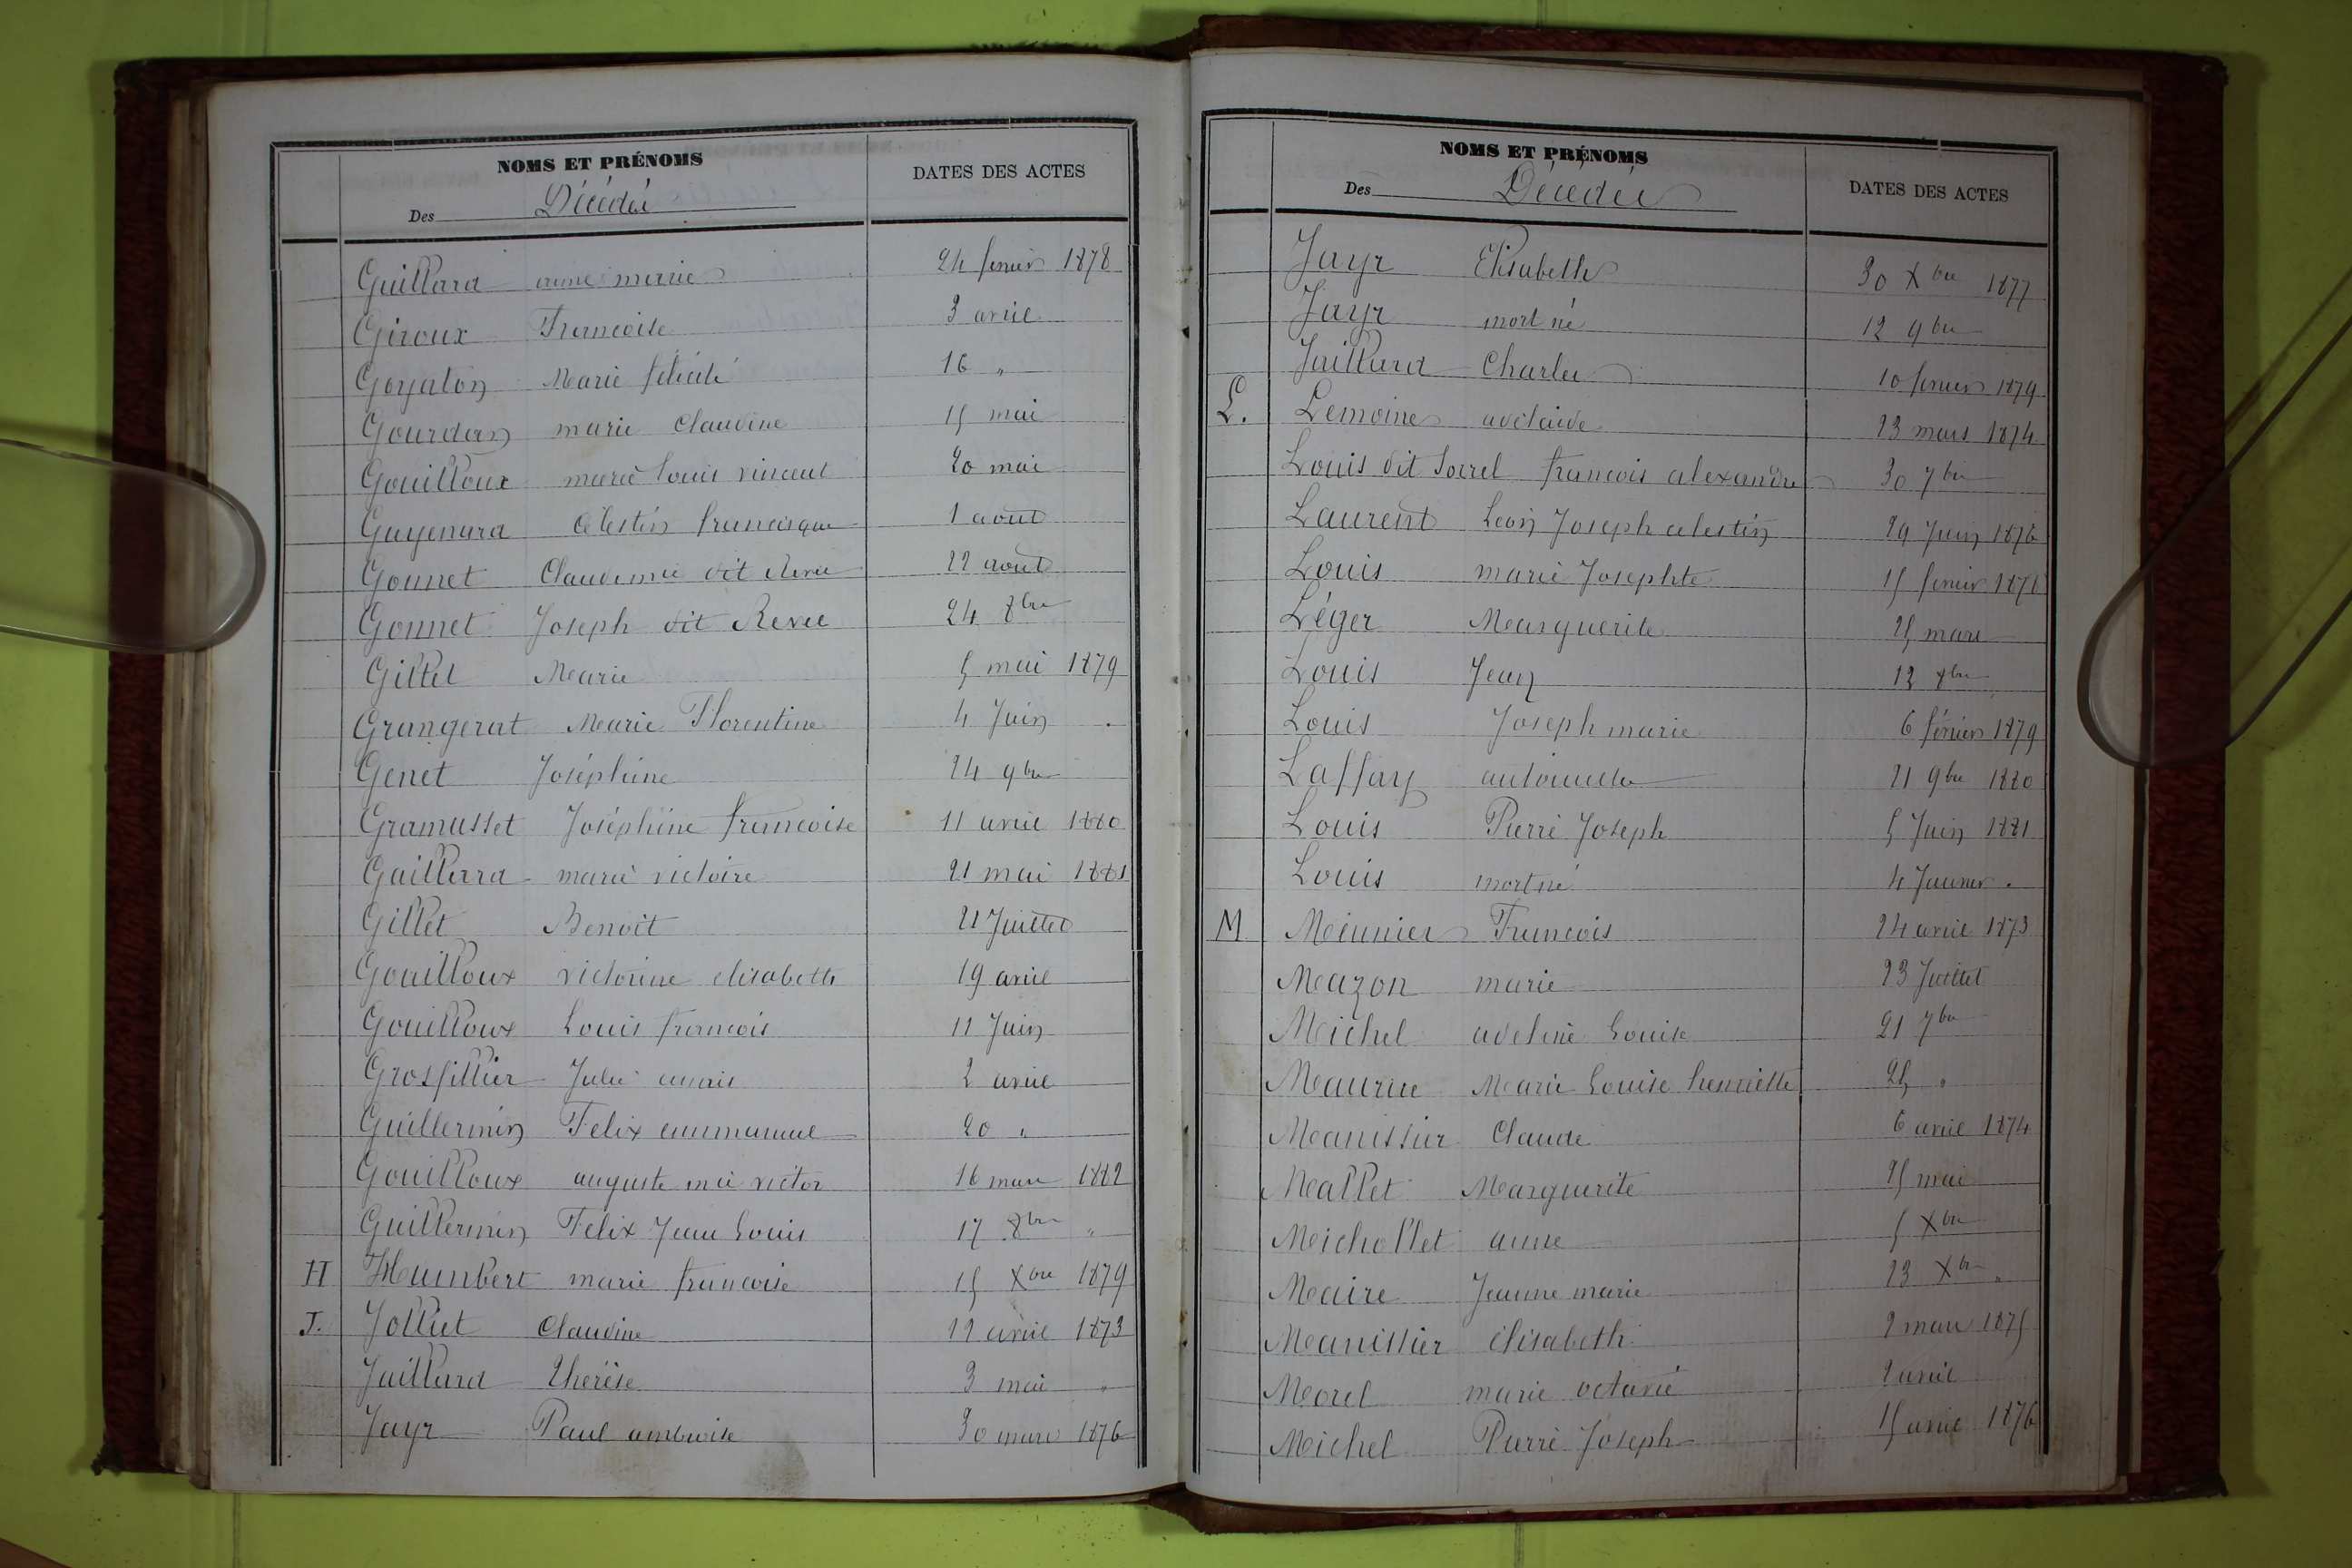 NOMS ET PRÉNOMS
Des Décédés
DATES DES ACTES
Guillard anne marie 24 fevrier 1878
Giroux Francoise 3 avril
Goyaton Marie félicité 16 "
Gourdan marie Claudine 15 mai
Gouilloux marie Louis vincent 20 mai
Guyenard Célestin francisque 1 aout
Gonnet Claude mie dit Revu 22 aout
Gonnet Joseph dit Revu 24 8bre
Gillet Marie 5 mai 1879
Grangerat Marie Florentine 4 Juin .
Genet Joséphine 24 9bre
Gramusset Joséphine francoise 11 avril 1880
Gaillard marie victoire 21 mai 1881
Gillet Benoit 21 Juillet
Gouilloux victorine elisabeth 19 avril
Gouilloux Louis francois 11 Juin
Grosfillier Julie anais 2 avril
Guillermin Felix emmanuel 20 "
Gouilloux auguste mie victor 16 mars 1882
Guillermin Felix Jean Louis 17 8bre "
H Humbert marie francoise 15 Xbre 1879
J. Jolliet Claudine 12 avril 1873
Jaillard Thérèse 3 mai "
Jayr Paul ambroise 30 mars 1876
NOMS ET PRÉNOMS
Des Décédés
DATES DES ACTES
Jayr Elisabeth 30 Xbre 1877
Jayr mort né 12 9bre
Jaillard Charles 10 fevrier 1879
L. Lemoine adélaide 23 mars 1874
Louis dit Sorrel francois alexandre 30 7bre
Laurent Léon Joseph celestin 29 Juin 1876
Louis marie Josephte 15 fevrier 1878
Léger Marguerite 25 mars
Louis Jean 12 8bre
Louis Joseph marie 6 février 1879
Laffay antoinette 21 9bre 1880
Louis Pierre Joseph 5 Juin 1881
Louis mort né 4 Janvier .
M Meunier Francois 24 avril 1873
Mazon marie 23 Juillet
Michel adeline Louise 21 7bre
Marie Louise henriette 25 "
Manissier Claude 6 avril 1874
Mallet Marguerite 25 mai
Michollet anne 5 Xbre
Maire Jeanne marie 23 Xbre "
Manissier élisabeth 2 mars 1875
Morel marie octavie 2 avril
Michel Pierre Joseph 15 avril 1876